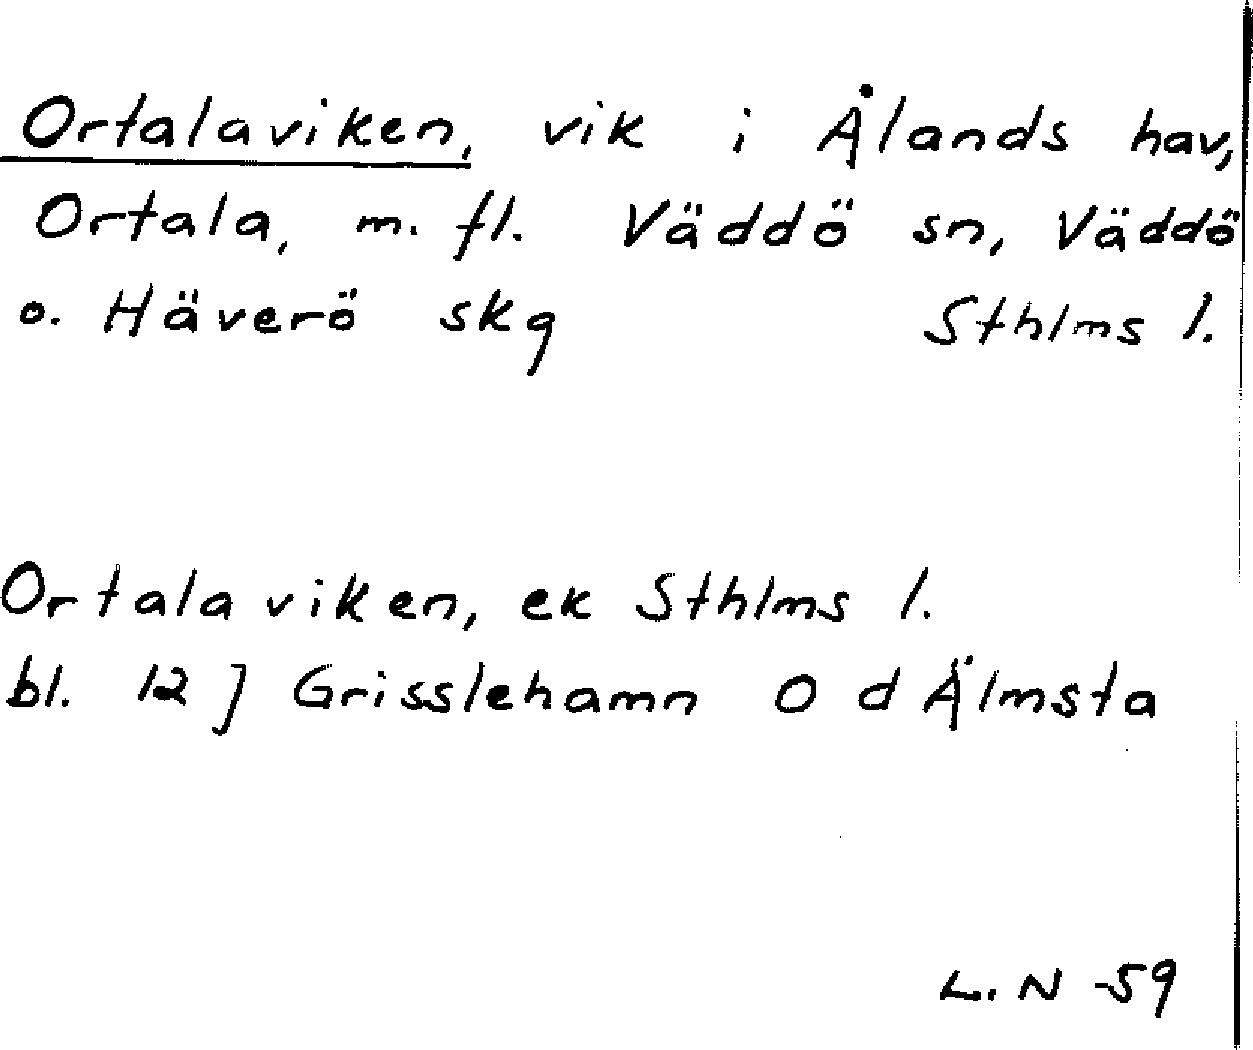 Ortalaviken, vik i Ålands hav,
Ortala, m. fl. Väddö sn, Väddö
o. Häverö skg Sthlms l.
Ortalaviken, ek Sthlms l.
bl. 12 J Grisslehamn O d Älmsta
L. N -59